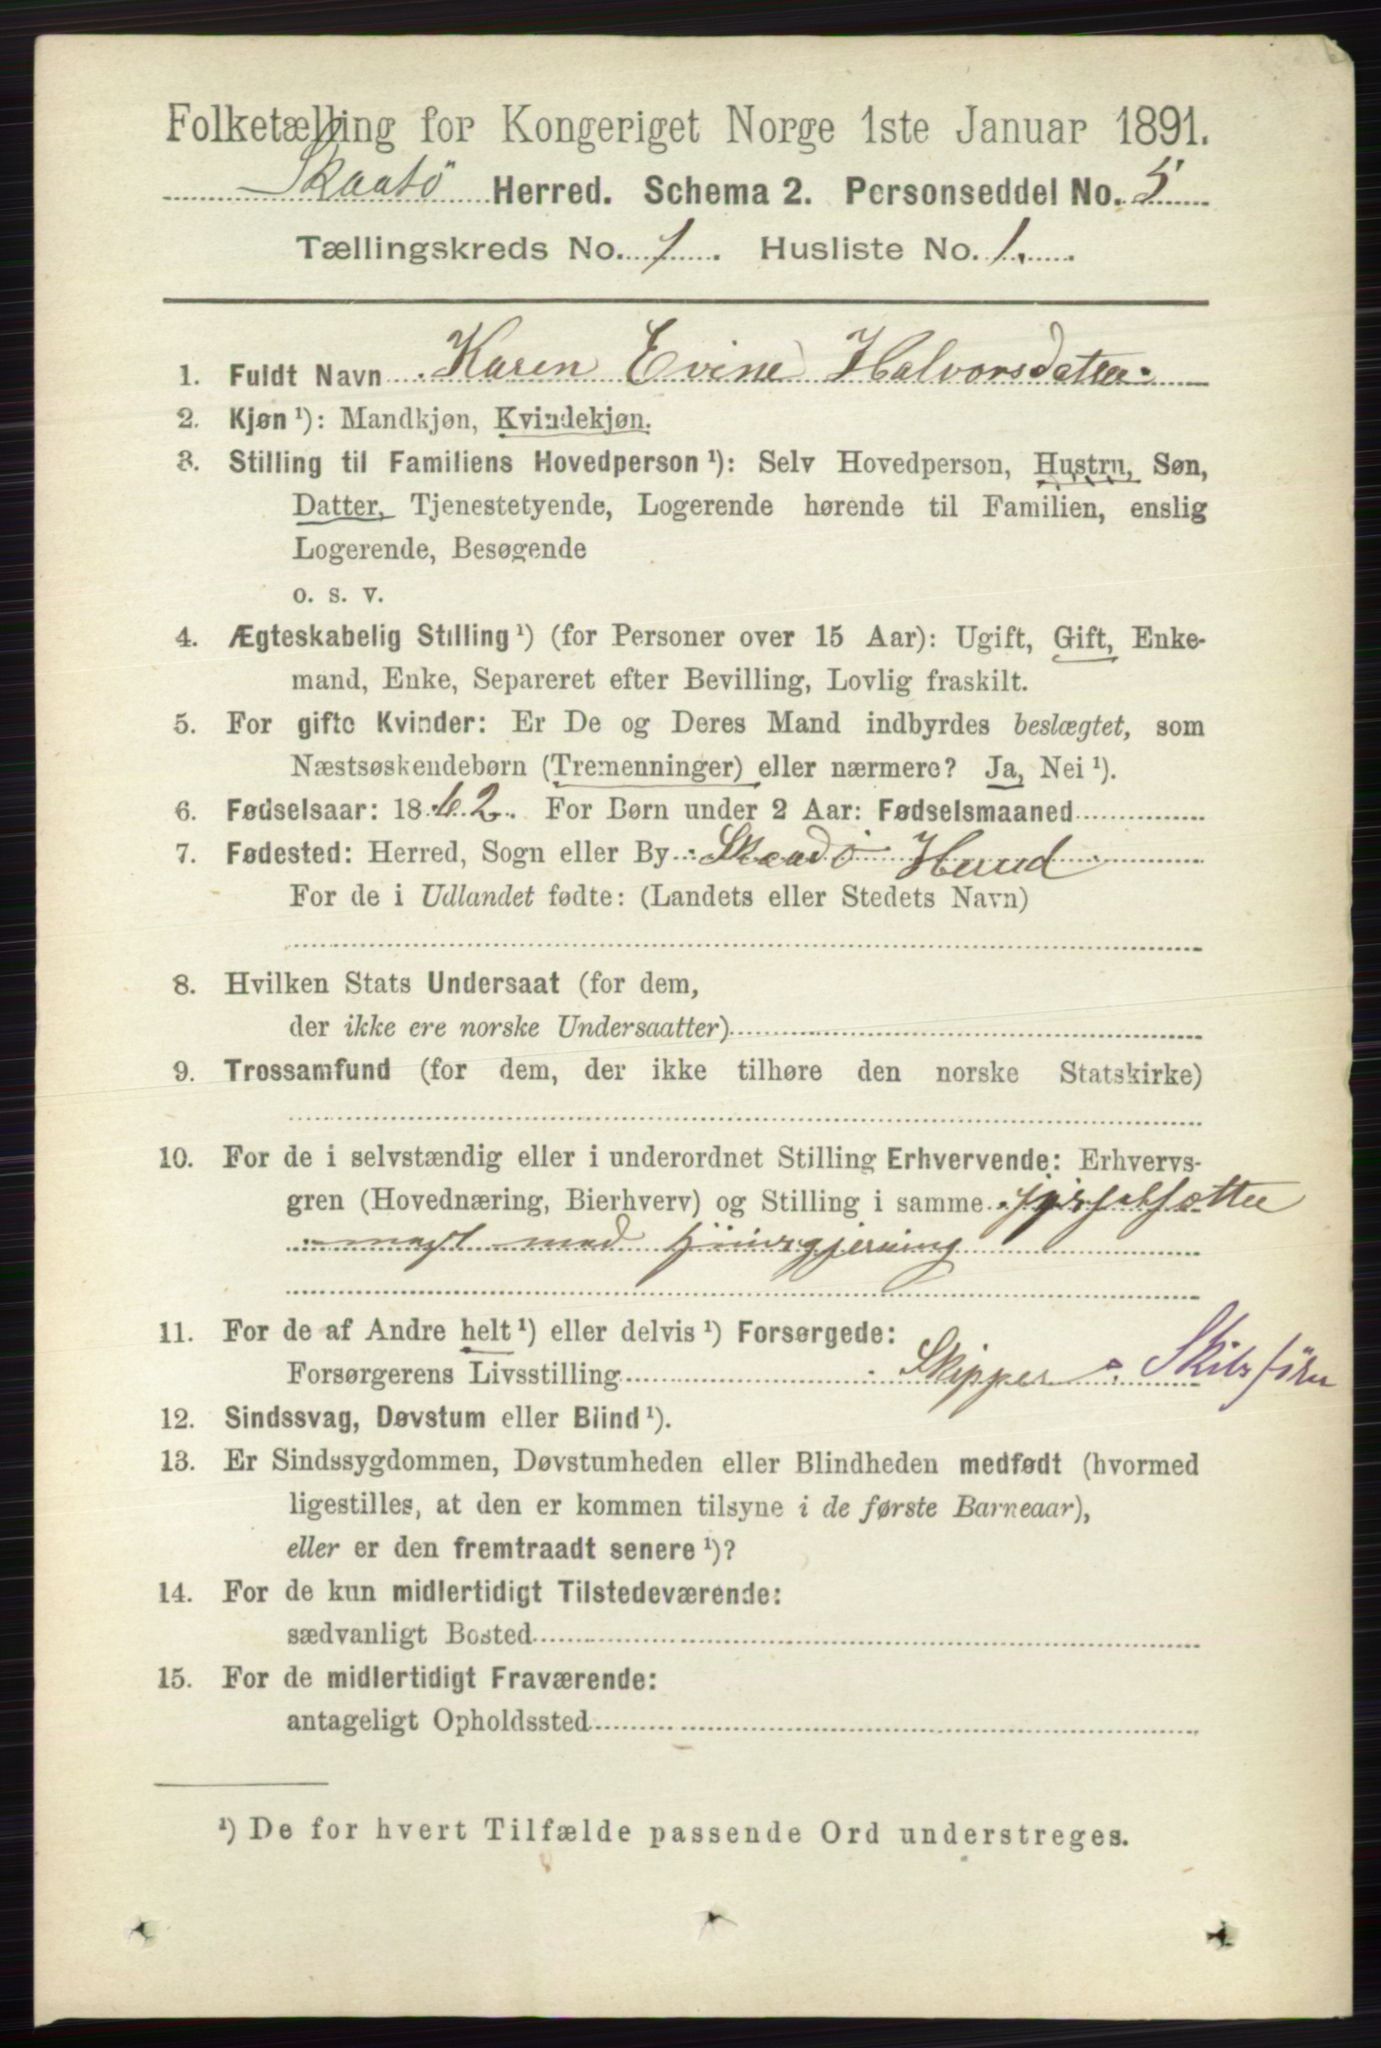 Folketælling for Kongeriget Norge 1ste Januar 1891.
Skaatö Herred. Schema 2. Personseddel No. 5
Tællingskreds No. 1. Husliste No. 1.
1. Fuldt Navn Karen Evine Halvorsdatter
2. Kjøn ¹): Mandkjøn, Kvindekjøn.
3. Stilling til Familiens Hovedperson ¹): Selv Hovedperson, Hustru, Søn,
Datter, Tjenestetyende, Logerende hørende til Familien, enslig
Logerende, Besøgende
o. s. v.
4. Ægteskabelig Stilling ¹) (for Personer over 15 Aar): Ugift, Gift, Enke-
mand, Enke, Separeret efter Bevilling, Lovlig fraskilt.
5. For gifte Kvinder: Er De og Deres Mand indbyrdes beslægtet, som
Næstsøskendebørn (Tremenninger) eller nærmere? Ja, Nei ¹).
6. Fødselsaar: 1862. For Børn under 2 Aar: Fødselsmaaned
7. Fødested: Herred, Sogn eller By Skaadö Herred
For de i Udlandet fødte: (Landets eller Stedets Navn)
8. Hvilken Stats Undersaat (for dem,
der ikke ere norske Undersaatter)
9. Trossamfund (for dem, der ikke tilhøre den norske Statskirke)
10. For de i selvstændig eller i underordnet Stilling Erhvervende: Erhvervs-
gren (Hovednæring, Bierhverv) og Stilling i samme
med
11. For de af Andre helt ¹) eller delvis ¹) Forsørgede:
Forsørgerens Livsstilling Skipper
12. Sindssvag, Døvstum eller Blind ¹).
13. Er Sindssygdommen, Døvstumheden eller Blindheden medfødt (hvormed
ligestilles, at den er kommen tilsyne i de første Barneaar),
eller er den fremtraadt senere ¹)?
14. For de kun midlertidigt Tilstedeværende:
sædvanligt Bosted
15. For de midlertidigt Fraværende:
antageligt Opholdssted
¹) De for hvert Tilfælde passende Ord understreges.